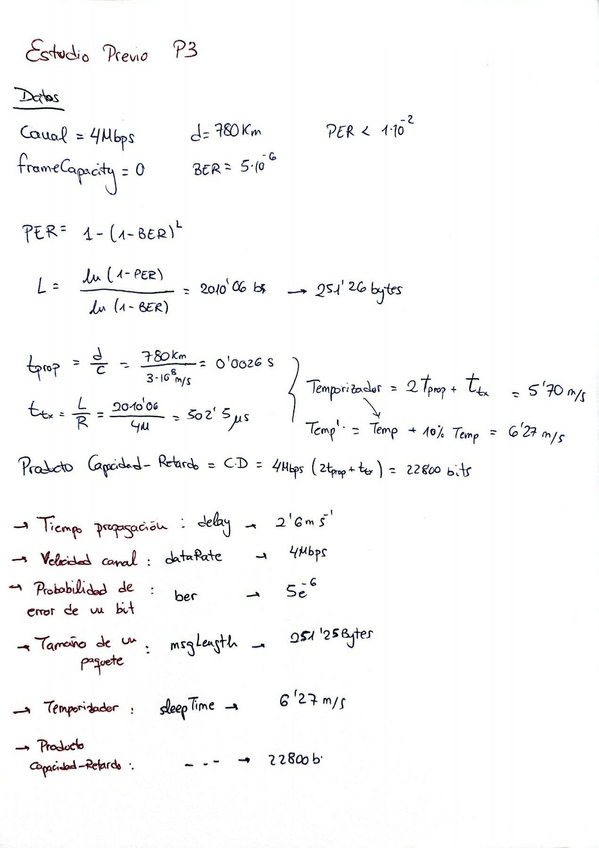 Estudio Previo P3
Datos
Canal = 4Mbps d = 780Km PER < 1·10^-2
frameCapacity = 0 BER = 5·10^-6
PER = 1-(1-BER)^L
L = ln (1-PER) / ln (1-BER) = 2010'06 bs → 251'26 bytes
tprop = d/c = 780km / 3·10^8 m/s = 0'0026 s
ttx = L/R = 2010'06 / 4M = 502'5 μs
Temporizador = 2tprop + ttx = 5'70 m/s
Temp' = Temp + 10% Temp = 6'27 m/s
Producto Capacidad-Retardo = C·D = 4Mbps (2tprop + ttx) = 22800 bits
→ Tiempo propagación : delay → 2'6ms^-1
→ Velocidad canal : dataRate → 4Mbps
→ Probabilidad de error de un bit : ber → 5e^-6
→ Tamaño de un paquete : msgLength → 251'25Bytes
→ Temporizador : sleepTime → 6'27 m/s
→ Producto Capacidad-Retardo : --- → 22800 b.